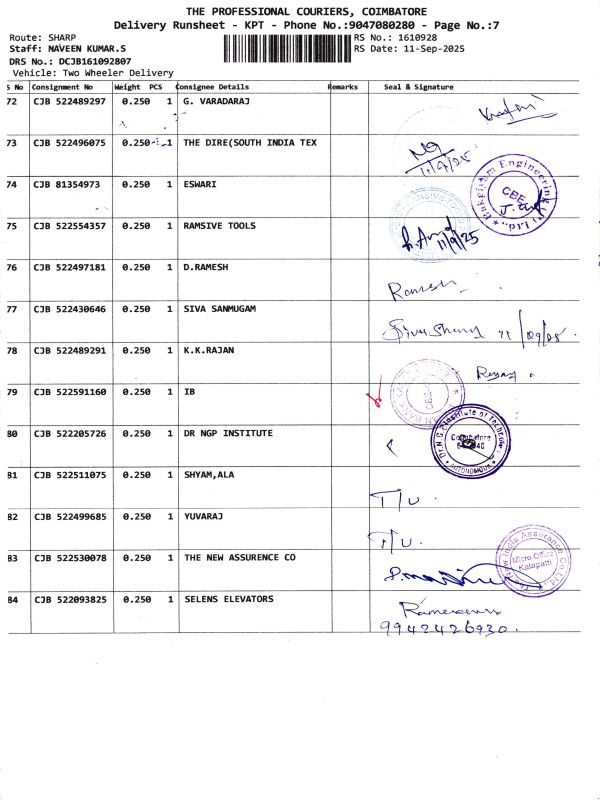 THE PROFESSIONAL COURIERS, COIMBATORE
Delivery Runsheet - KPT - Phone No.:9047080280 - Page No.:7
Route: SHARP
RS No.: 1610928
Staff: NAVEEN KUMAR.S
RS Date: 11-Sep-2025
DRS No.: DCJB161092807
Vehicle: Two Wheeler Delivery
S No Consignment No Weight PCS Consignee Details Remarks Seal & Signature
72 CJB 522489297 0.250 1 G. VARADARAJ
73 CJB 522496075 0.250 1 THE DIRE(SOUTH INDIA TEX
11/9/25
74 CJB 81354973 0.250 1 ESWARI
Engineering CBE
75 CJB 522554357 0.250 1 RAMSIVE TOOLS
11/9/25
76 CJB 522497181 0.250 1 D.RAMESH
Ramesh
77 CJB 522430646 0.250 1 SIVA SANMUGAM
78 CJB 522489291 0.250 1 K.K.RAJAN
79 CJB 522591160 0.250 1 IB
80 CJB 522205726 0.250 1 DR NGP INSTITUTE
Dr.N.G.P. Institute of Technology
Coimbatore
AUTONOMOUS
81 CJB 522511075 0.250 1 SHYAM,ALA
T/U.
82 CJB 522499685 0.250 1 YUVARAJ
T/U.
83 CJB 522530078 0.250 1 THE NEW ASSURENCE CO
New India Assurance Co. Ltd.
Micro Office
Kalapatti
84 CJB 522093825 0.250 1 SELENS ELEVATORS
9942426930.